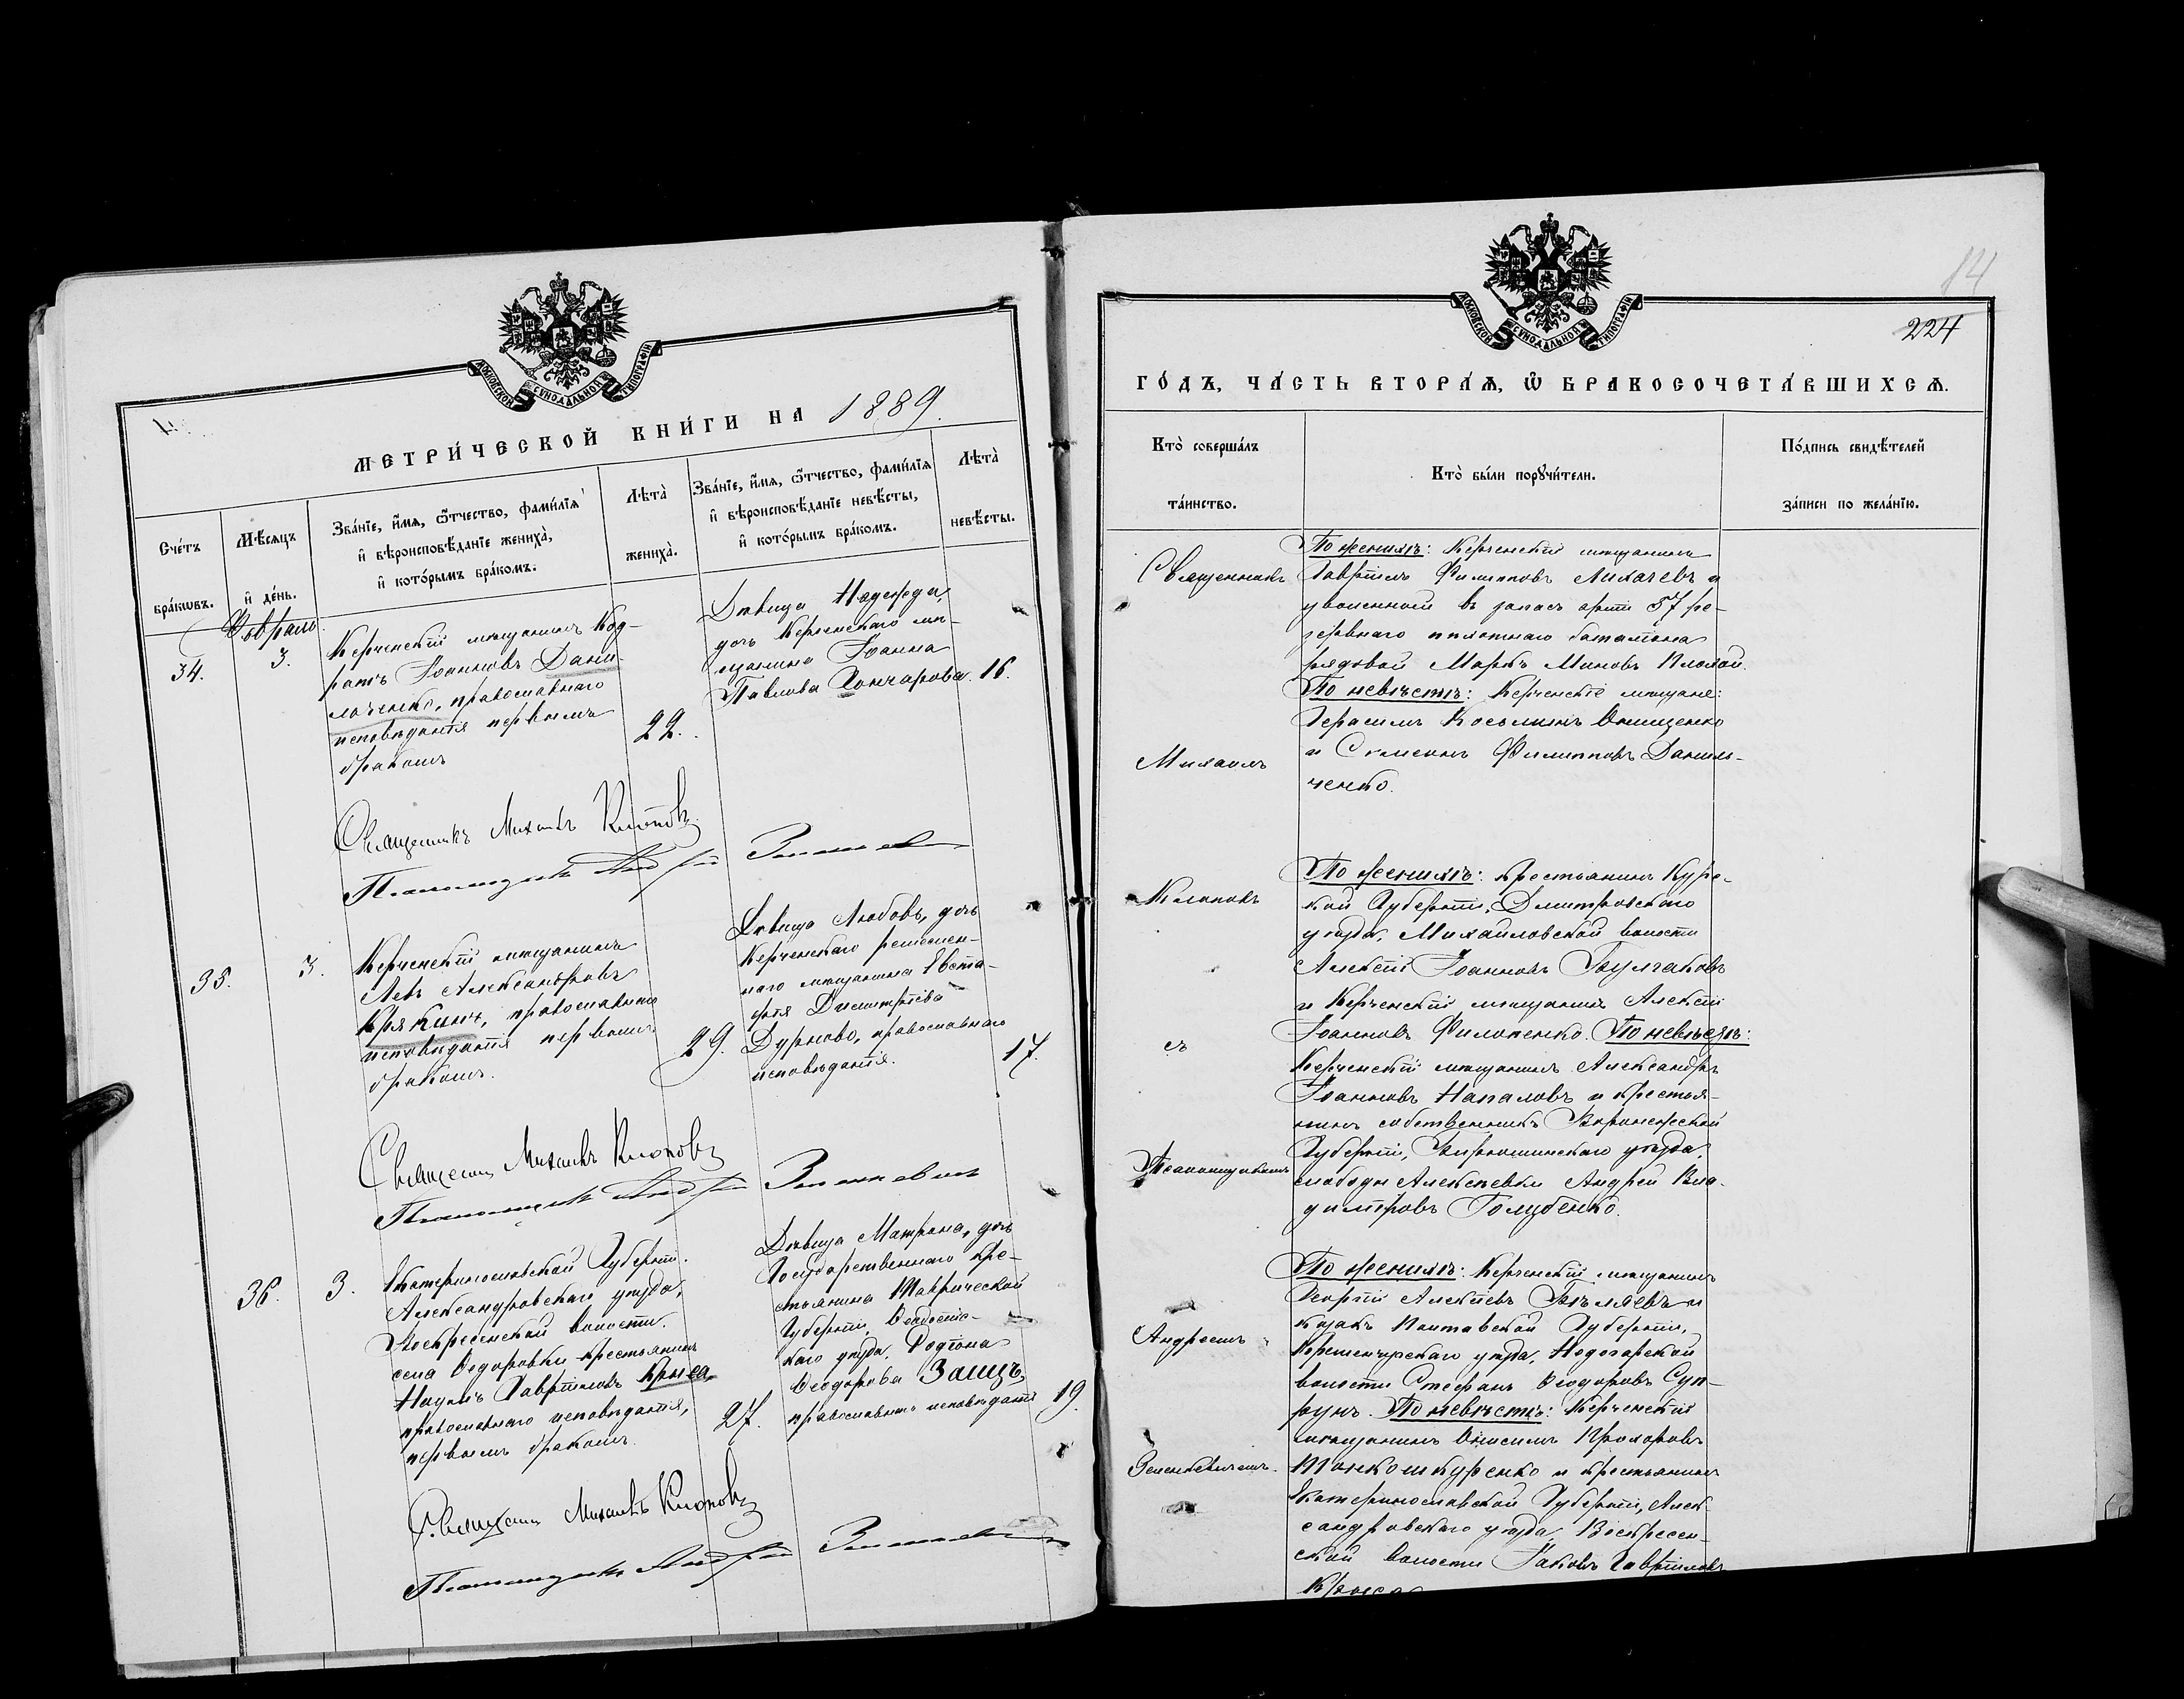 МОСКОВСКОЙ СѴНОДАЛЬНОЙ ТИПОГРАФІИ
МЕТРИ́ЧЕСКОЙ КНИ́ГИ НА 1889.
Сче́тъ
бра́кωвъ.
Мѣ́сяцъ
и҆ де́нь.
Зва́нїе, и҆́мѧ, ѿ́тчество, фами́лїѧ
и҆ вѣроисповѣ́данїе жениха̀,
и҆ кото́рымъ бра́комъ.
Лѣта̀
жениха̀.
Зва́нїе, и҆́мѧ, ѿ́тчество, фами́лїѧ
и҆ вѣроисповѣ́данїе невѣ́сты,
и҆ кото́рымъ бра́комъ.
Лѣта̀
невѣ́сты.
34.
Февраль
3.
Керченскій мѣщанинъ Код-
ратъ Іоанновъ Дани-
лоченко, православнаго
исповѣданія первымъ
бракомъ
22.
Дѣвица Надежда,
дочь Керченскаго мѣ-
щанина Іоанна
Павлова Гончарова.
16.
Священникъ Михаилъ Клоповъ
Псаломщикъ Андрей Зеленкевичъ
35.
3.
Керченскій мѣщанинъ
Левъ Александровъ
Крякинъ, православнаго
исповѣданія первымъ
бракомъ.
29.
Дѣвица Любовь, дочь
Керченскаго ремеслен-
наго мѣщанина Евста-
фія Димитріева
Дурново, православнаго
исповѣданія.
17.
Священникъ Михаилъ Клоповъ
Псаломщикъ Андрей Зеленкевичъ
36.
3.
Екатеринославской Губерніи.
Александровскаго уѣзда,
Воскресенской волости.
села Ѳедоровки крестьянинъ
Наумъ Гавріиловъ Крыса,
православнаго исповѣданія,
первымъ бракомъ.
27.
Дѣвица Матрона, дочь
Государственнаго кре-
стьянина Таврической
Губерніи, Ѳеодосійс-
каго уѣзда, Родіона
Ѳеодорова Заицъ,
православнаго исповѣданія
19.
Священникъ Михаилъ Клоповъ
Псаломщикъ Андрей Зеленкевичъ
14
224
МОСКОВСКОЙ СѴНОДАЛЬНОЙ ТИПОГРАФІИ
ГО́ДЪ, ЧА́СТЬ ВТОРА́Ѧ, Ѽ БРАКОСОЧЕТА́ВШИХСѦ.
Кто̀ соверша́лъ
та́инство.
Кто̀ бы́ли порꙋчи́тели.
По́дпись свидѣ́телей
за́писи по жела́нїю.
Священникъ
Михаилъ
Клоповъ
съ
Псаломщикомъ
Андреемъ
Зеленкевичемъ.
По женихѣ: Керченскій мѣщанинъ
Гавріилъ Филипповъ Лихачевъ и
уволенный въ запасъ арміи 57 ре-
зервнаго пѣхотнаго баталіона
рядовой Маркъ Миновъ Плохой.
По невѣстѣ: Керченскіе мѣщане:
Герасимъ Косьминъ Онищенко
и Симеонъ Филипповъ Даниль-
ченко.
По женихѣ: крестьянинъ Курс-
кой Губерніи, Дмитровскаго
уѣзда, Михаиловской волости
Алексій Іоанновъ Булгаковъ
и Керченскій мѣщанинъ Алексій
Іоанновъ Филопенко. По невѣстѣ:
Керченскій мѣщанинъ Александръ
Іоанновъ Напаловъ и крестья-
нинъ собственникъ Воронежской
Губерніи, Бирюченскаго уѣзда,
слободы Алексѣевки Андрей Вла-
диміровъ Голубенко.
По женихѣ: Керченскій мѣщанинъ
Георгій Алексіевъ Бѣляевъ и
казакъ Полтавской Губерніи,
Кременчугскаго уѣзда,
волости Стефанъ Ѳеодоровъ Суп-
рунъ. По невѣстѣ: Керченскій
мѣщанинъ Онисимъ Прохоровъ
Тонкошкуренко и крестьянинъ
Екатеринославской Губерніи, Алек-
сандровскаго уѣзда, Воскресен-
ской волости Іаковъ Гавріиловъ
Крыса